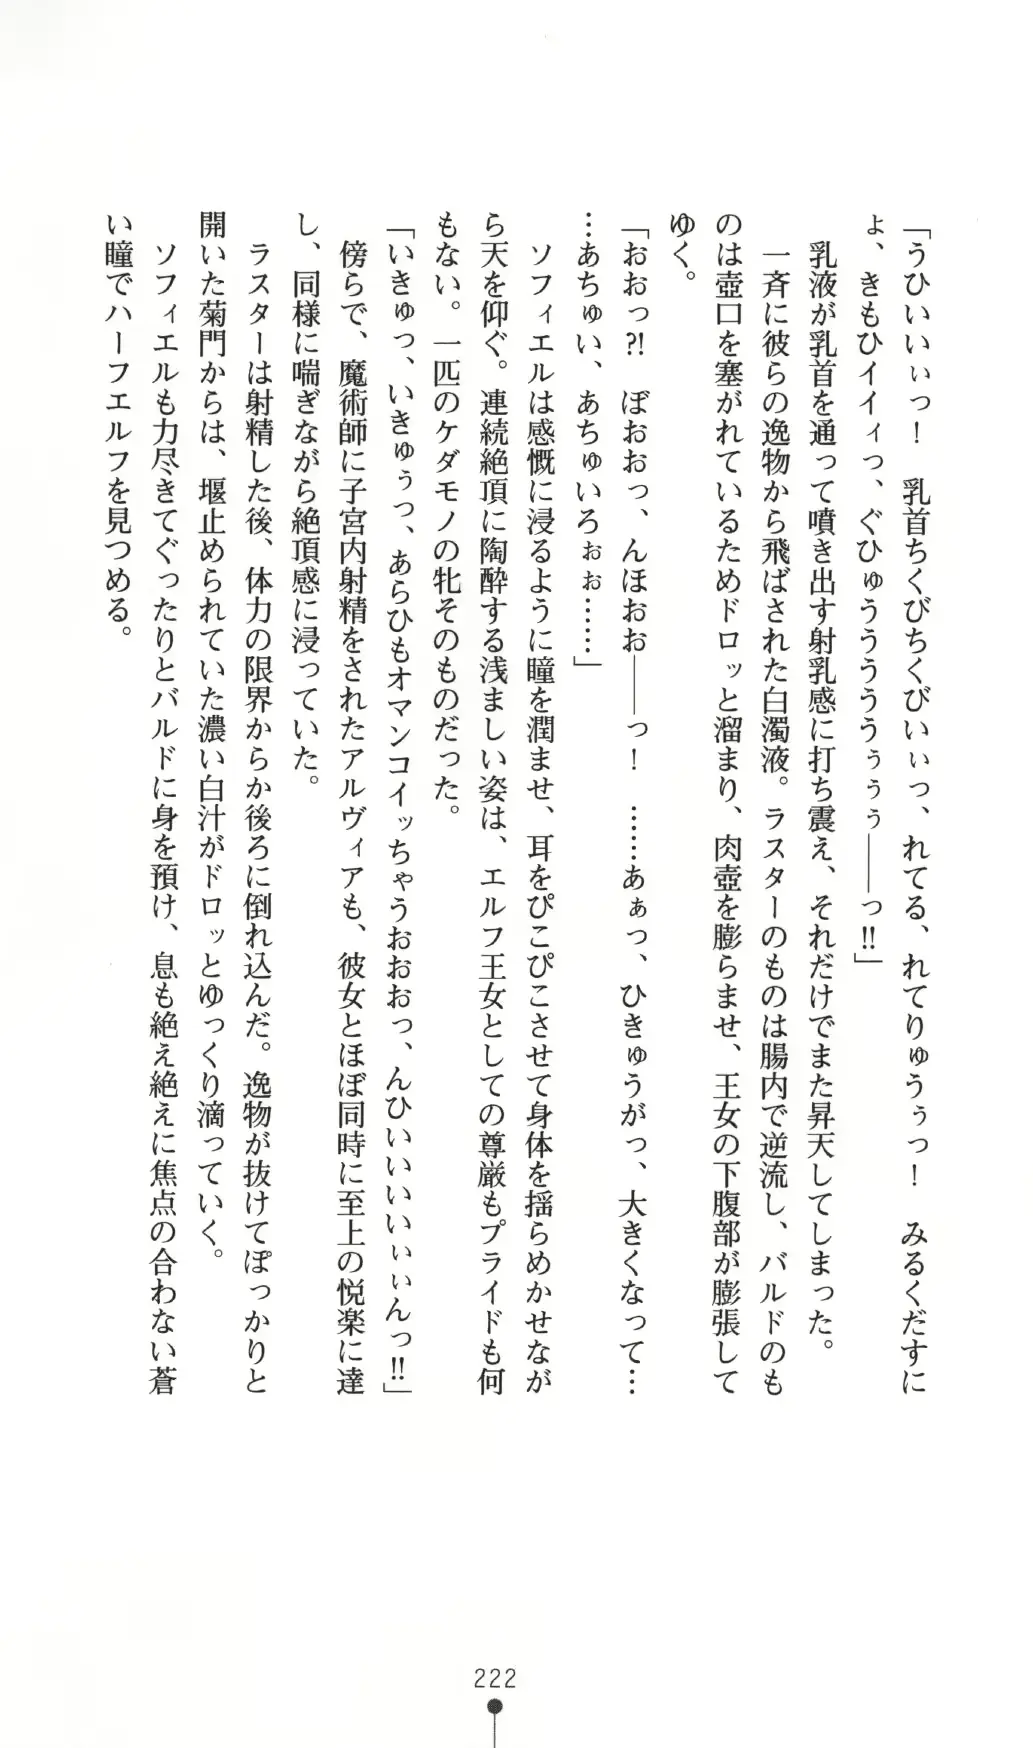 「うひいいぃっ！　乳首ちくびちくびいぃっ、れてる、れてりゅうぅっ！　みるくだすに
ょ、きもひイイィっ、ぐひゅうううううぅぅぅ――っ!!」
　乳液が乳首を通って噴き出す射乳感に打ち震え、それだけでまた昇天してしまった。
　一斉に彼らの逸物から飛ばされた白濁液。ラスターのものは腸内で逆流し、バルドのも
のは壺口を塞がれているためドロッと溜まり、肉壺を膨らませ、王女の下腹部が膨張して
ゆく。
「おおっ?!　ぼおおっ、んほおお――っ！　……あぁっ、ひきゅうがっ、大きくなって…
…あちゅい、あちゅいろぉぉ……」
　ソフィエルは感慨に浸るように瞳を潤ませ、耳をぴこぴこさせて身体を揺らめかせなが
ら天を仰ぐ。連続絶頂に陶酔する浅ましい姿は、エルフ王女としての尊厳もプライドも何
もない。一匹のケダモノの牝そのものだった。
「いきゅっ、いきゅぅっ、あらひもオマンコイッちゃうおおおっ、んひいいいいぃぃんっ!!」
　傍らで、魔術師に子宮内射精をされたアルヴィアも、彼女とほぼ同時に至上の悦楽に達
し、同様に喘ぎながら絶頂感に浸っていた。
　ラスターは射精した後、体力の限界からか後ろに倒れ込んだ。逸物が抜けてぽっかりと
開いた菊門からは、堰止められていた濃い白汁がドロッとゆっくり滴っていく。
　ソフィエルも力尽きてぐったりとバルドに身を預け、息も絶え絶えに焦点の合わない蒼
い瞳でハーフエルフを見つめる。
222